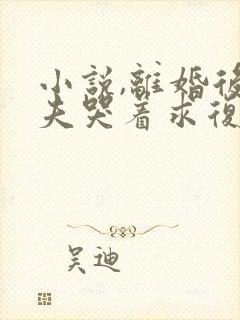 小説,離婚後
夫哭着求復
吴迪